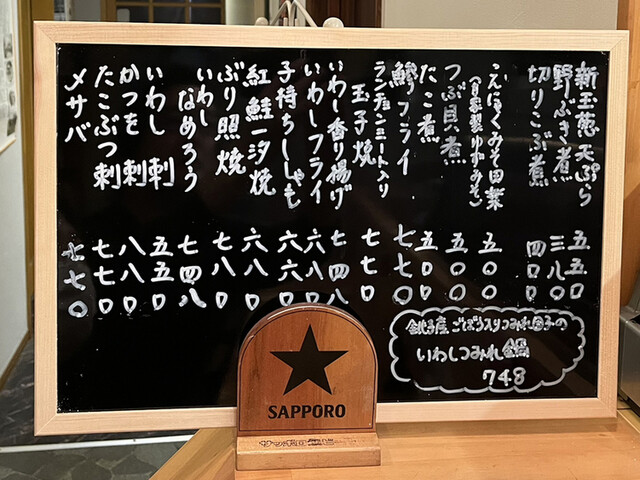 新玉葱天ぷら 五五〇
野ぶき煮 三八〇
切りこぶ煮 四〇〇
こんにゃくみそ田楽 五〇〇
(自家製ゆずみそ)
つぶ貝煮 五〇〇
たこ煮 五〇〇
鯵フライ 七七〇
ランチョンミート入り
玉子焼 七七〇
いわし香り揚げ 七四八
いわしフライ 六六〇
子持ちししゃも 六六〇
紅鮭一汐焼 六八〇
ぶり照焼 七八〇
いわし
なめろう 七四八
いわし刺 五五〇
かつを刺 八八〇
たこぶつ刺 七七〇
メサバ 七七〇
銚子産ごぼう入りつみれ団子の
いわしつみれ鍋
748
SAPPORO
サッポロ